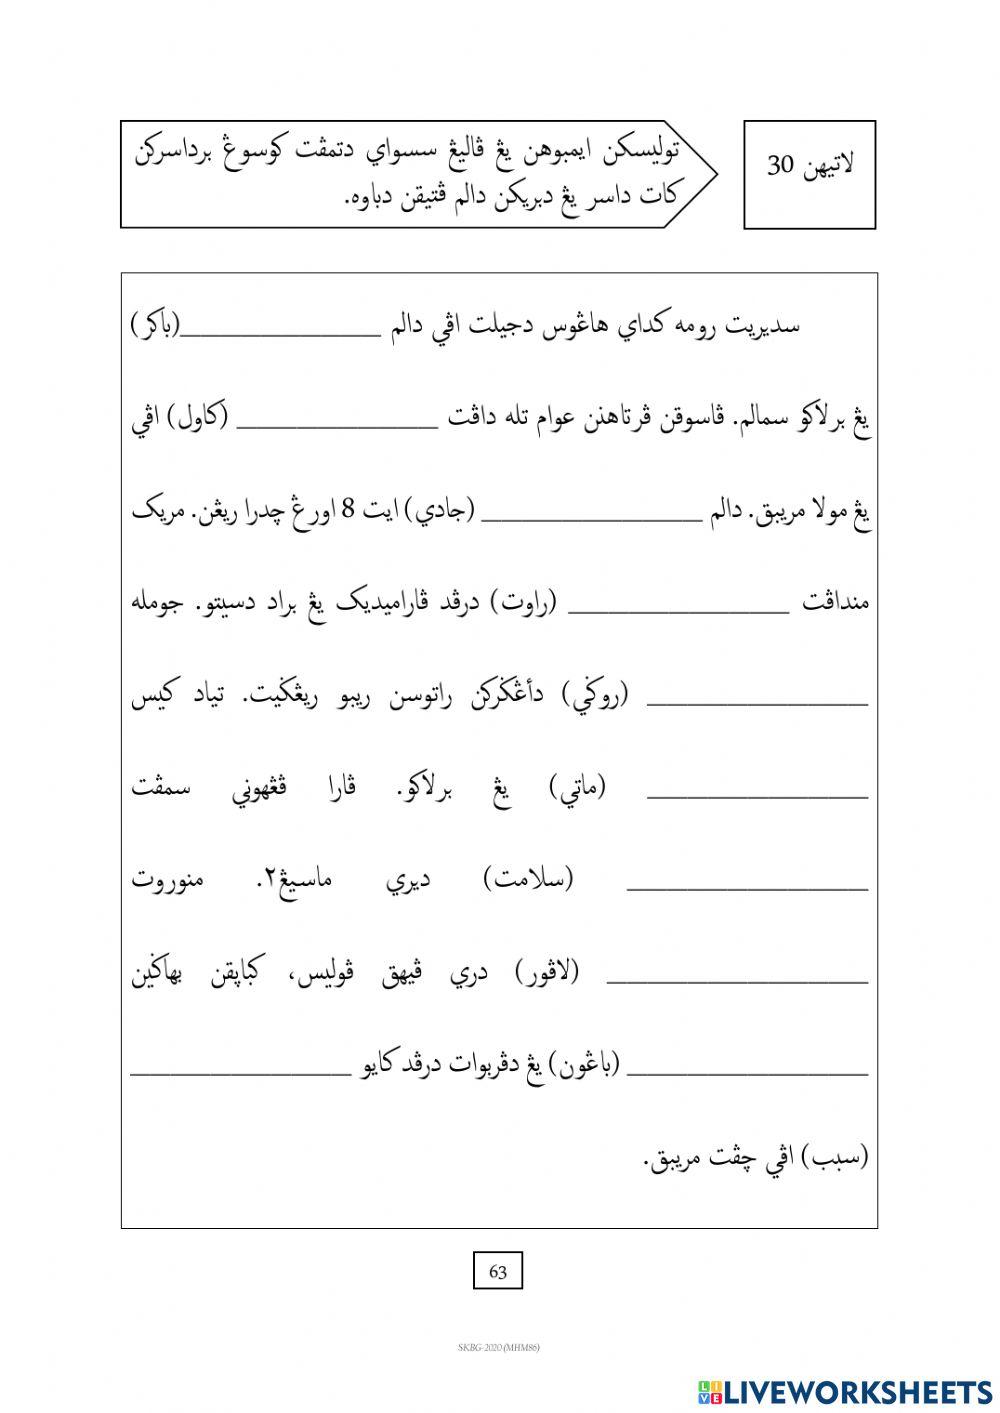 لاتيهن 30
توليسكن ايمبوهن يڠ ڤاليڠ سسواي دتمڤت كوسوڠ برداسركن
كات داسر يڠ دبريكن دالم ڤتيقن دباوه.
سديريت رومه كداي هاڠوس دجيلت اڤي دالم ____________________(باكر)
يڠ برلاكو سمالم. ڤاسوقن ڤرتاهنن عوام تله داڤت ____________________ (كاول) اڤي
يڠ مولا مريبق. دالم ______________________ (جادي) ايت 8 اورڠ چدرا ريڠن. مريک
منداڤت ______________________ (راوت) درڤد ڤاراميديک يڠ براد دسيتو. جومله
______________________ (روݢي) دأڠݢركن راتوسن ريبو ريڠݢيت. تياد كيس
______________________ (ماتي) يڠ برلاكو. ڤارا ڤڠهوني سمڤت
________________________ (سلامت) ديري ماسيڠ٢. منوروت
__________________________ (لاڤور) دري ڤيهق ڤوليس، كباڽقن بهاݢين
________________________ (باڠون) يڠ دڤربوات درڤد كايو ______________________
(سبب) اڤي چڤت مريبق.
63
SKBG-2020 (MHM86)
LIVE LIVEWORKSHEETS